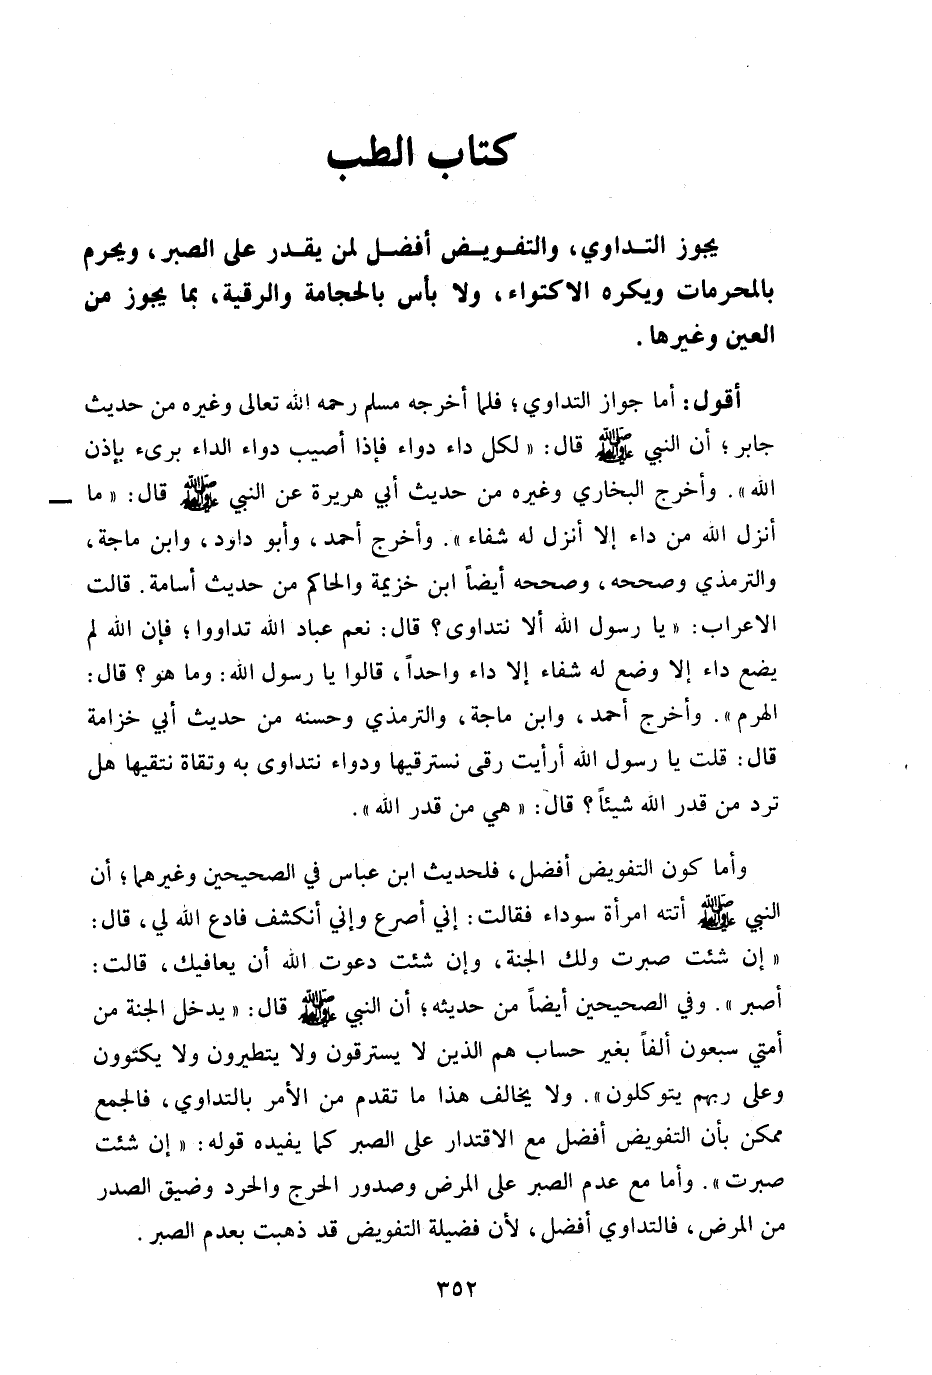 كتاب الطب
يجوز التداوي، والتفويض أفضل لمن يقدر على الصبر، ويحرم
بالمحرمات ويكره الاكتواء، ولا بأس بالحجامة والرقية، بما يجوز من
العين وغيرها.
أقول: أما جواز التداوي؛ فلما أخرجه مسلم رحمه الله تعالى وغيره من حديث
جابر؛ أن النبي ﷺ قال: «لكل داء دواء فإذا أصيب دواء الداء برىء بإذن
الله». وأخرج البخاري وغيره من حديث أبي هريرة عن النبي ﷺ قال: «ما
أنزل الله من داء إلا أنزل له شفاء». وأخرج أحمد، وأبو داود، وابن ماجة،
والترمذي وصححه، وصححه أيضاً ابن خزيمة والحاكم من حديث أسامة. قالت
الاعراب: «يا رسول الله ألا نتداوى؟ قال: نعم عباد الله تداووا؛ فإن الله لم
يضع داء إلا وضع له شفاء إلا داء واحداً، قالوا يا رسول الله: وما هو؟ قال:
الهرم». وأخرج أحمد، وابن ماجة، والترمذي وحسنه من حديث أبي خزامة
قال: قلت يا رسول الله أرأيت رقى نسترقيها ودواء نتداوى به وتقاة نتقيها هل
ترد من قدر الله شيئاً؟ قال: «هي من قدر الله».
وأما كون التفويض أفضل، فلحديث ابن عباس في الصحيحين وغيرهما؛ أن
النبي ﷺ أتته امرأة سوداء فقالت: إني أصرع وإني أنكشف فادع الله لي، قال:
«إن شئت صبرت ولك الجنة، وإن شئت دعوت الله أن يعافيك، قالت:
أصبر». وفي الصحيحين أيضاً من حديثه؛ أن النبي ﷺ قال: «يدخل الجنة من
أمتي سبعون ألفاً بغير حساب هم الذين لا يسترقون ولا يتطيرون ولا يكتوون
وعلى ربهم يتوكلون». ولا يخالف هذا ما تقدم من الأمر بالتداوي، فالجمع
ممكن بأن التفويض أفضل مع الاقتدار على الصبر كما يفيده قوله: «إن شئت
صبرت». وأما مع عدم الصبر على المرض وصدور الحرج والحرد وضيق الصدر
من المرض، فالتداوي أفضل، لأن فضيلة التفويض قد ذهبت بعدم الصبر.
٣٥٢